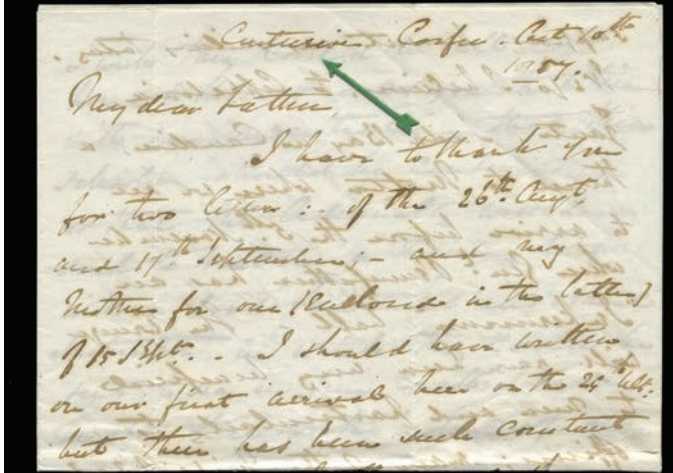 Centurion Corfu - Oct 10th
1857.
My dear Father,
I have to thank you
for two letters: of the 26th Augt.
and 17th September; - and my
Mother for one (enclosed in the latter)
of 15 Sept. - I should have written
on our first arrival here on the 26th ult:
but there has been such constant